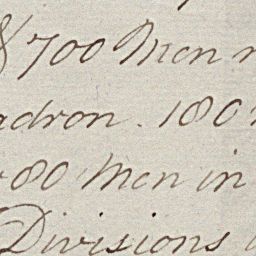 & 700 Men
adron. 180
80 Men in
Divisions